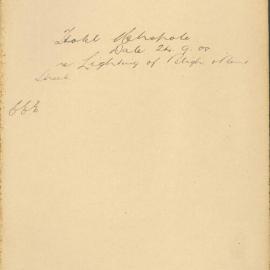 Hotel Metropole
Date 24.9.00
re Lighting of Bligh & Bent
Street